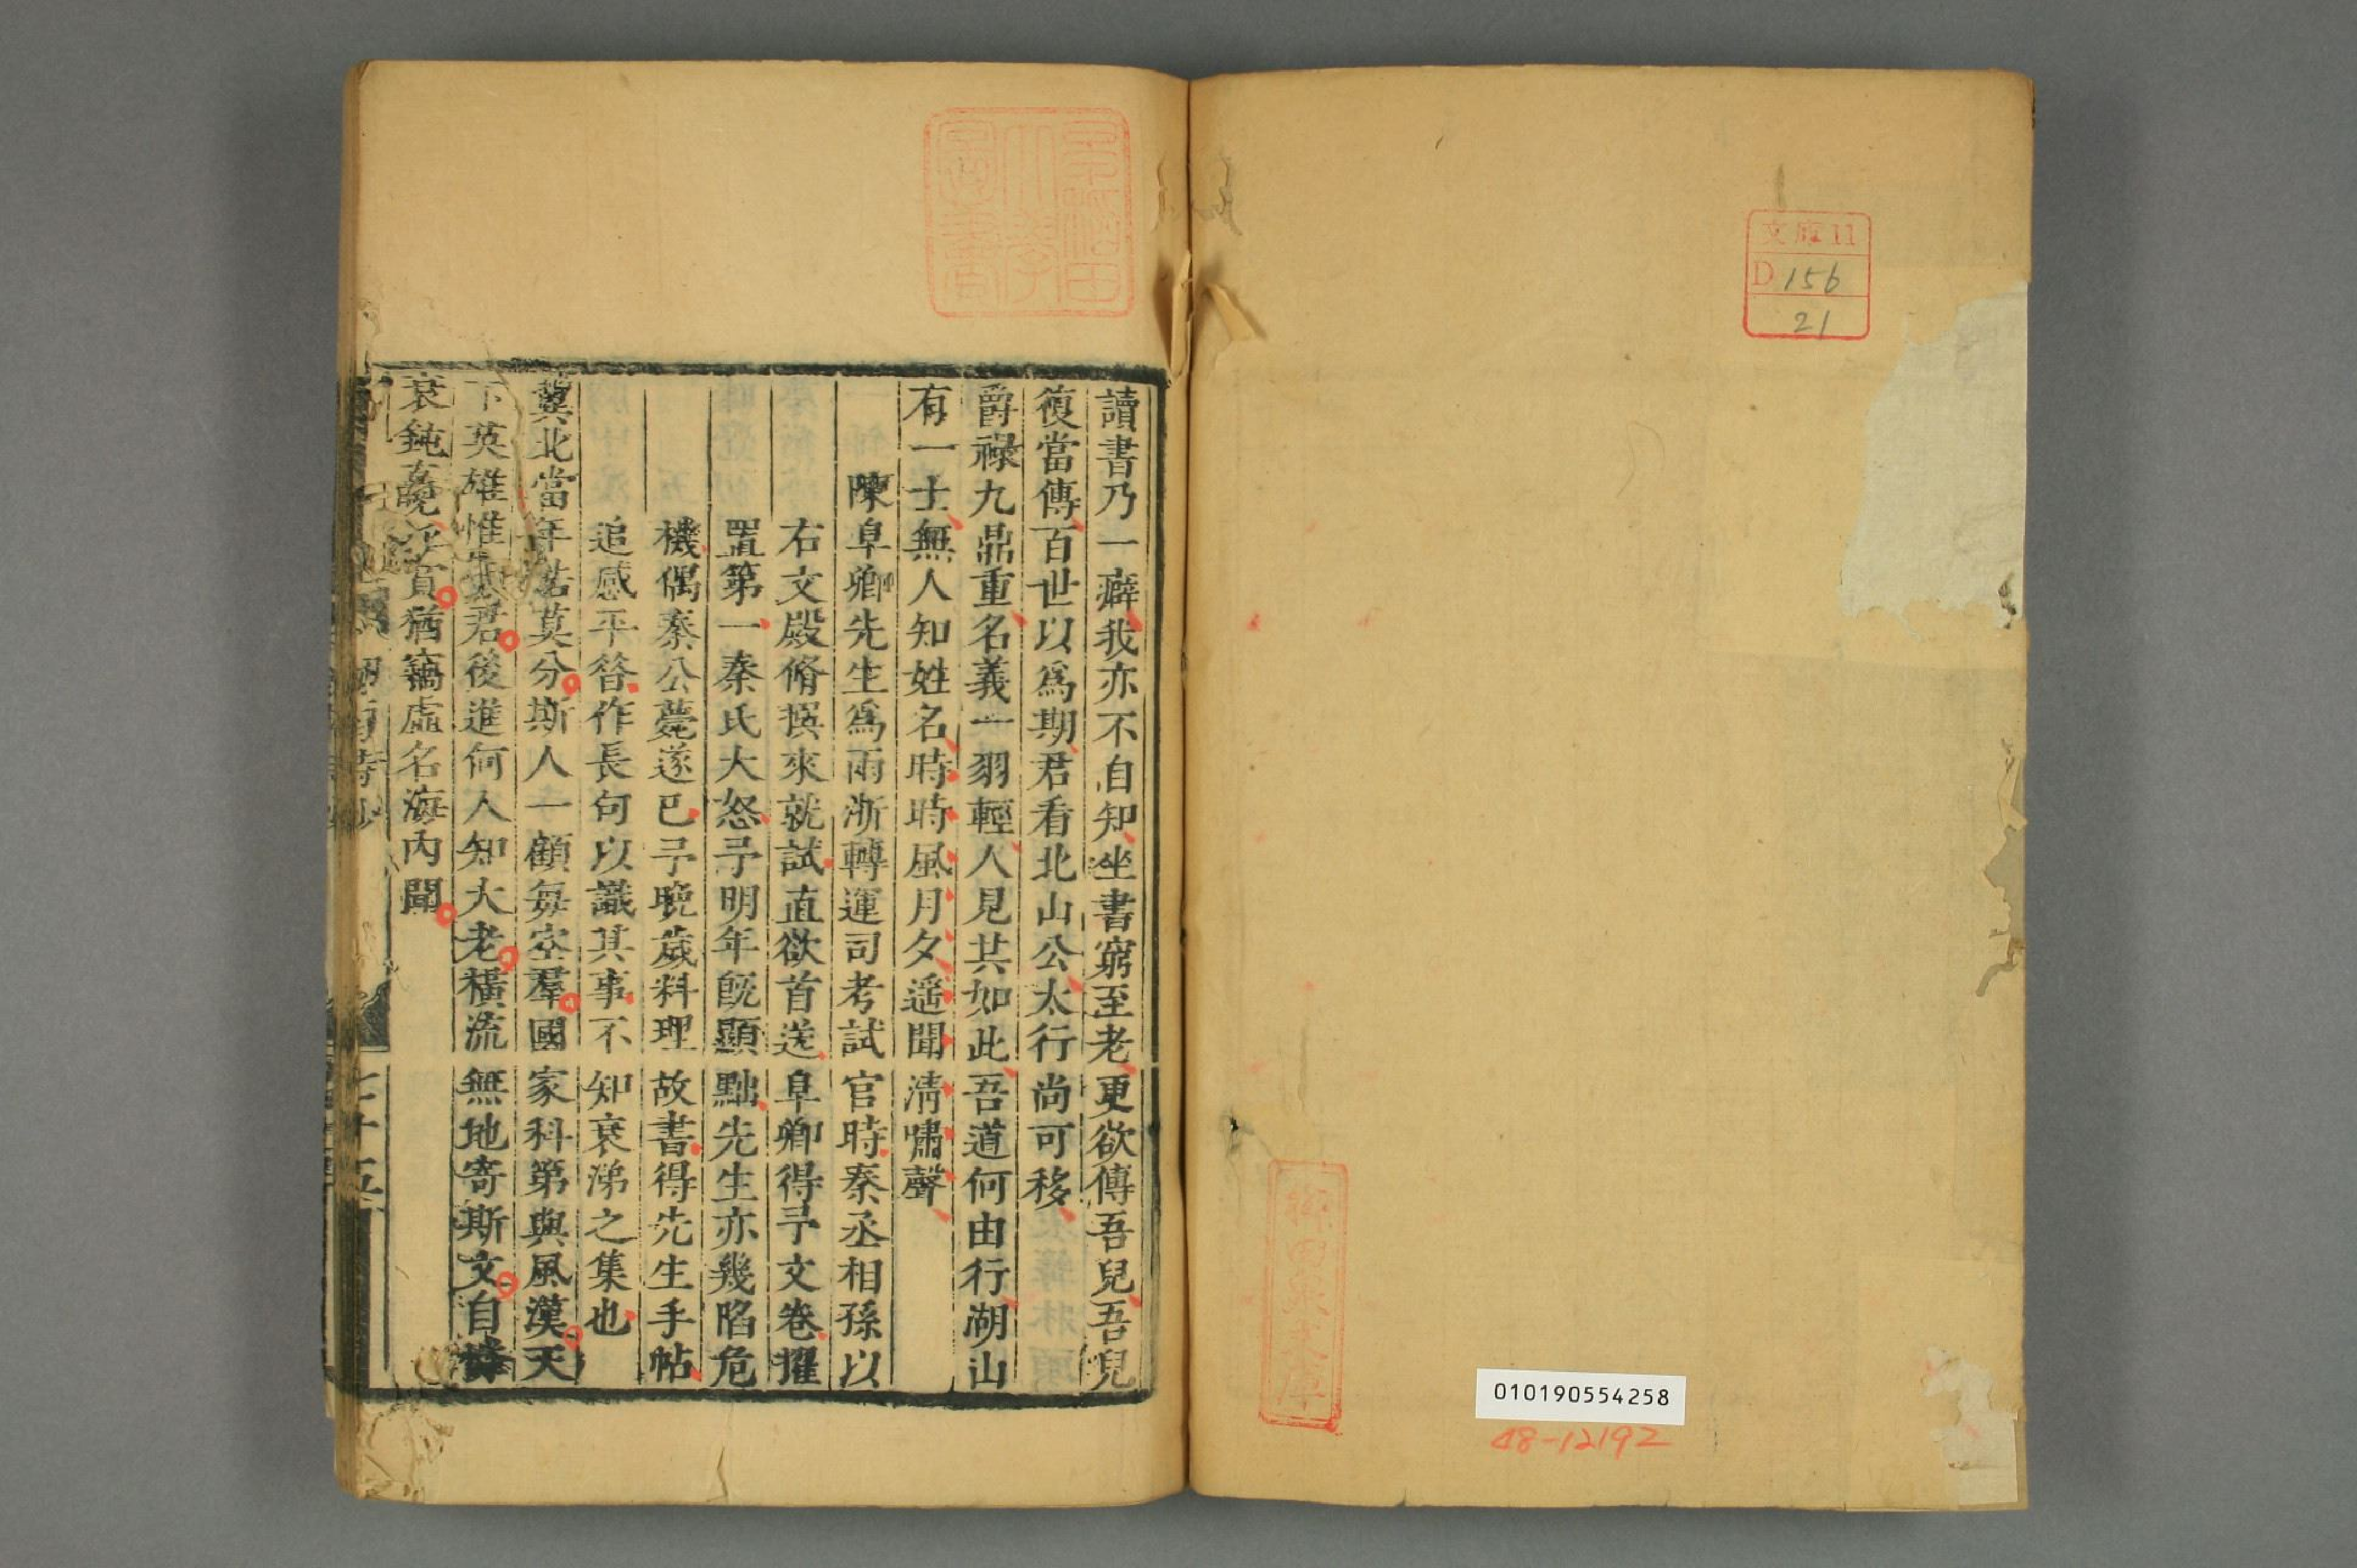 文庫11
D 156
21
010190554258
48-12192
讀書乃一癖我亦不自知坐書窮至老更欲傳吾兒吾兒
復當傳百世以爲期君看北山公太行尚可移
爵祿九鼎重名義一羽輕人見共如此吾道何由行湖山
有一士無人知姓名時時風月夕遥聞淸嘯聲
陳阜卿先生爲兩浙轉運司考試官時秦丞相孫以
右文殿脩撰來就試直欲首送阜卿得予文卷擢
置第一秦氏大怒予明年旣顯黜先生亦幾陷危
機偶秦公薨遂已予晚歲料理故書得先生手帖
追感平昝作長句以識其事不知衰涕之集也
冀北當年浩莫分斯人一顧每空羣國家科第與風漢天
下英雄惟使君後進何人知大老橫流無地寄斯文自憐
衰鈍辜眞賞猶竊虛名海內聞
七十五